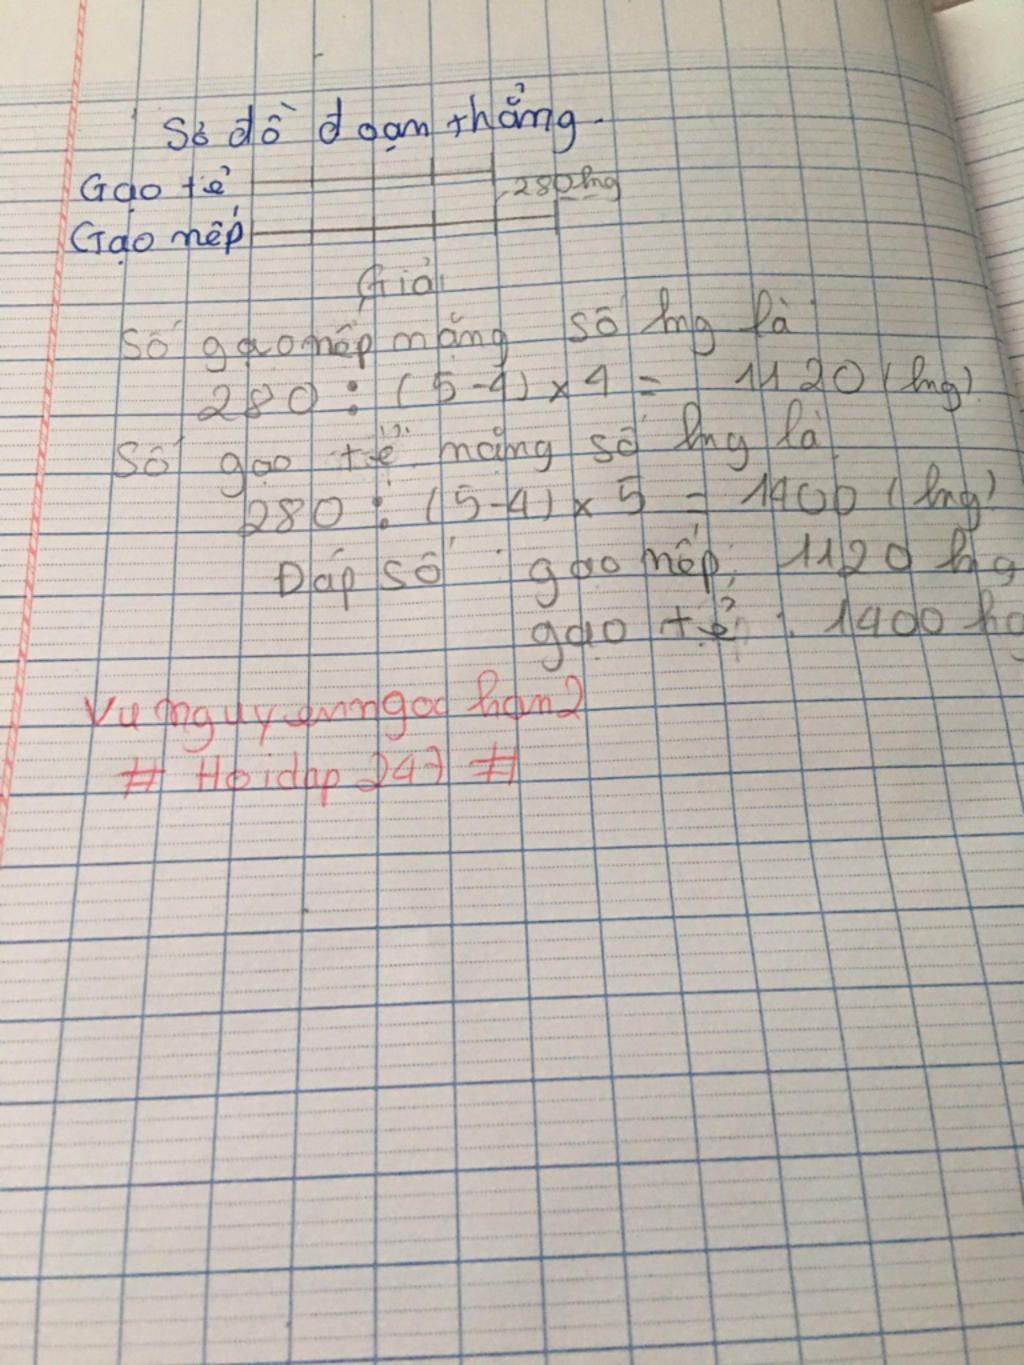 Sơ đồ đoạn thẳng.
Gạo tẻ
280kg
Gạo nếp
Giải
Số gạo nếp nặng số kg là
280 : (5-4) x 4 = 1120 (kg)
Số gạo tẻ nặng số kg là
280 : (5-4) x 5 = 1400 (kg)
Đáp số : gạo nếp: 1120 kg
gạo tẻ : 1400 kg
Vunguyenngochan2
# Hoidap247 #